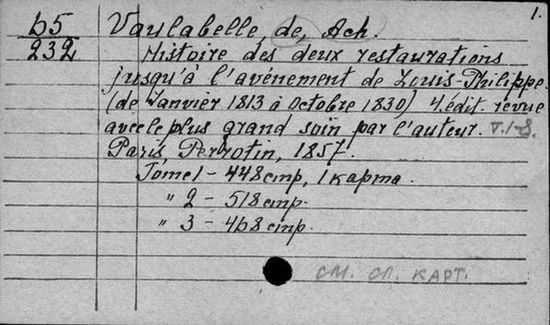 1.
б5 Vaulabelle, de, Ach.
232 Histoire des deux restaurations
jusqu'à l'avénement de Louis-Philippe.
(de Janvier 1813 à Octobre 1830) 4 édit. revue
avec le plus grand soin par l'auteur. т. 1-8.
Paris, Perrotin, 1857.
Tome 1 - 448 стр., 1 карта.
" 2 - 518 стр.
" 3 - 468 стр.
СМ. СЛ. КАРТ.